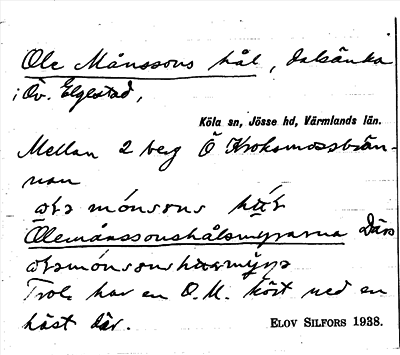 Ole Månssons hål, dalsänka
i Öv. Elgestad,
Köla sn, Jösse hd, Värmlands län.
Mellan 2 berg Ö Kroksmossbrän-
nan
Olemånssonshålsmyrarna Därs
Trol. har en O.M. kört ned en
häst där.
ELOV SILFORS 1938.